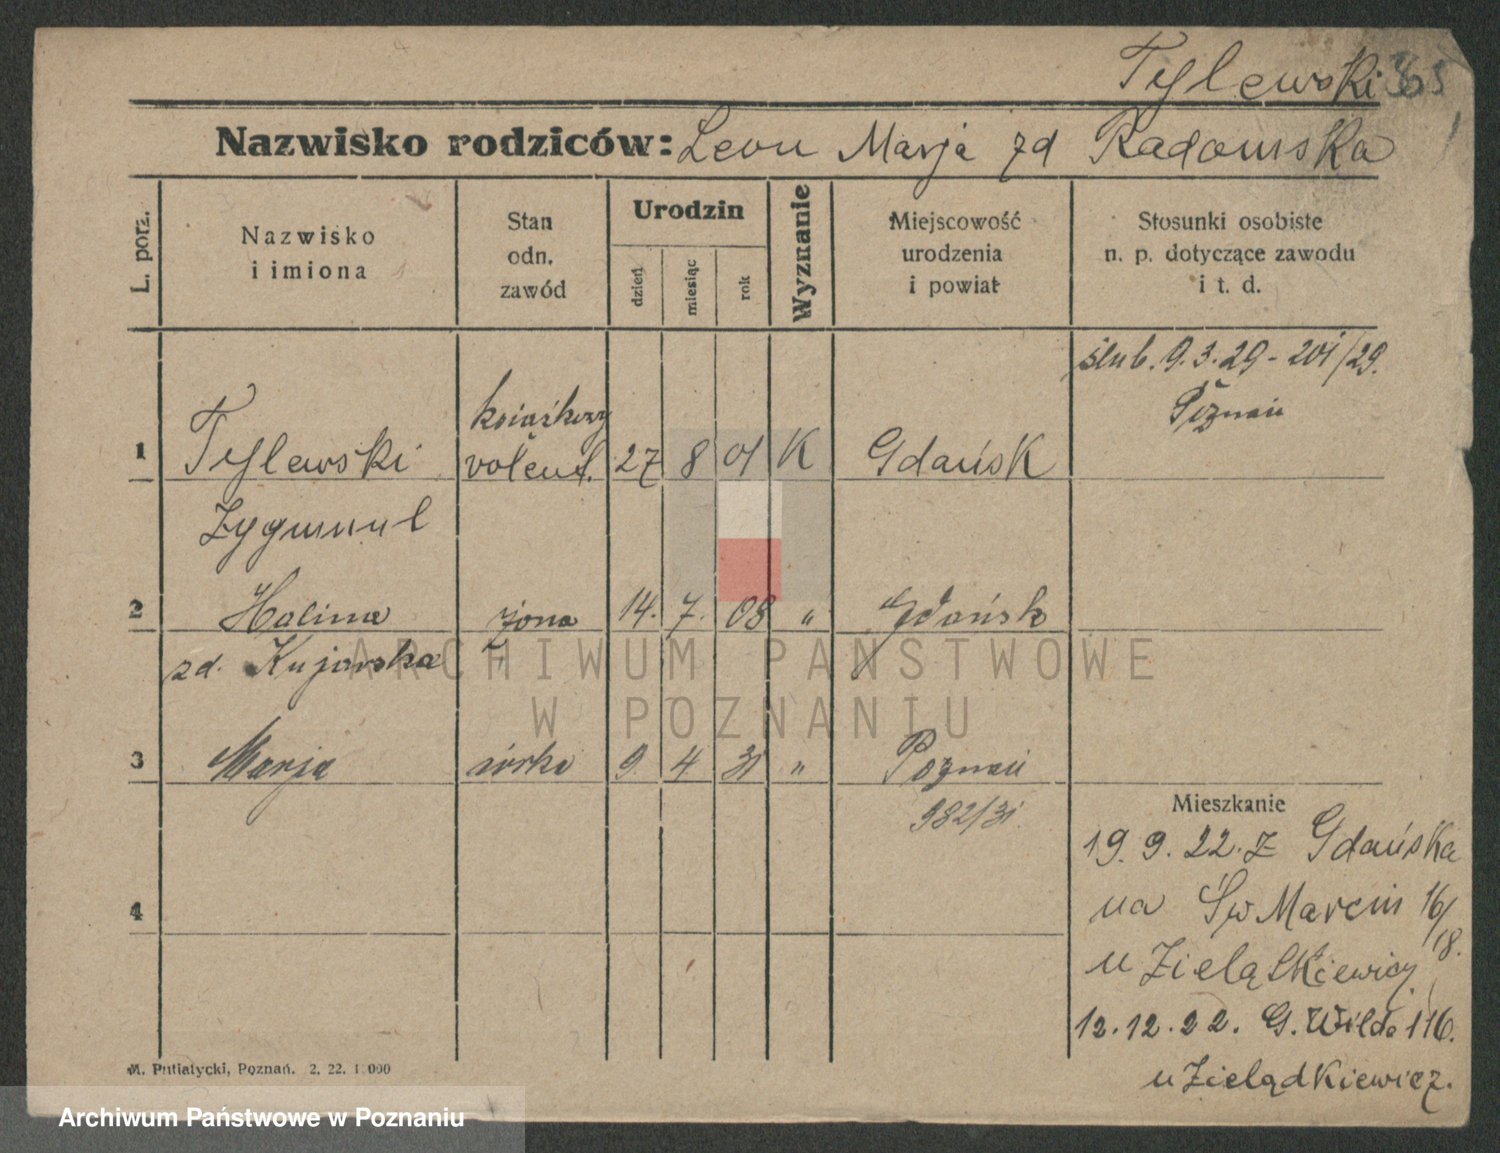 Tylewski
Nazwisko rodziców: Leon Marja zd Radomska
L. porz.
Nazwisko
i imiona
Stan
odn.
zawód
Urodzin
dzień
miesiąc
rok
Wyznanie
Miejscowość
urodzenia
i powiat
Stosunki osobiste
n. p. dotyczące zawodu
i t. d.
ślub. 9.3.29 - 201/29.
Poznań
1 Tylewski 27 8 01 K Gdańsk
Zygmunt
2 Halina żona 14. 7. 08 " Gdańsk
zd. Kujawska
3 Marja córka 9 4 31 " Poznań
982/31
4
Mieszkanie
19. 9. 22. z Gdańska
na Św Marcin 16/18.
u Zieląśkiewicz
12.12.22. G. Wilda 116.
u Zielądkiewicz.
M. Putiatycki, Poznań. 2. 22. 1000
ARCHIWUM PAŃSTWOWE
W POZNANIU
Archiwum Państwowe w Poznaniu